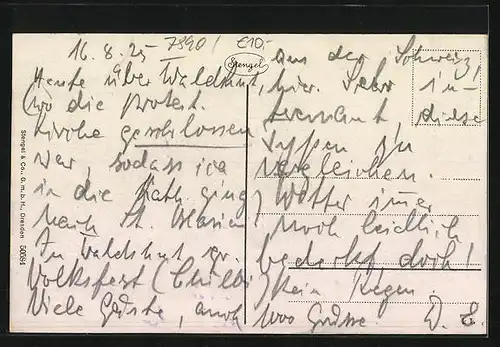 16.8.25
7390/
£10.-
Spengel
Heute über Waldshut,
(wo die protest.
Kirche geschlossen
war, sodass ich
in die Kath. ging,
nach St. Blasien
In Waldshut gr.
Volksfest (Chilbi)
Viele Gäste, auch
aus der Schweiz,
hier. Sehr in-
teressant, diese
Typen zu
vergleichen.
Wetter immer
noch leidlich
bedeckt doch
kein Regen.
1000 Grüsse. W. E.
Stengel & Co., G. m. b. H., Dresden 50084